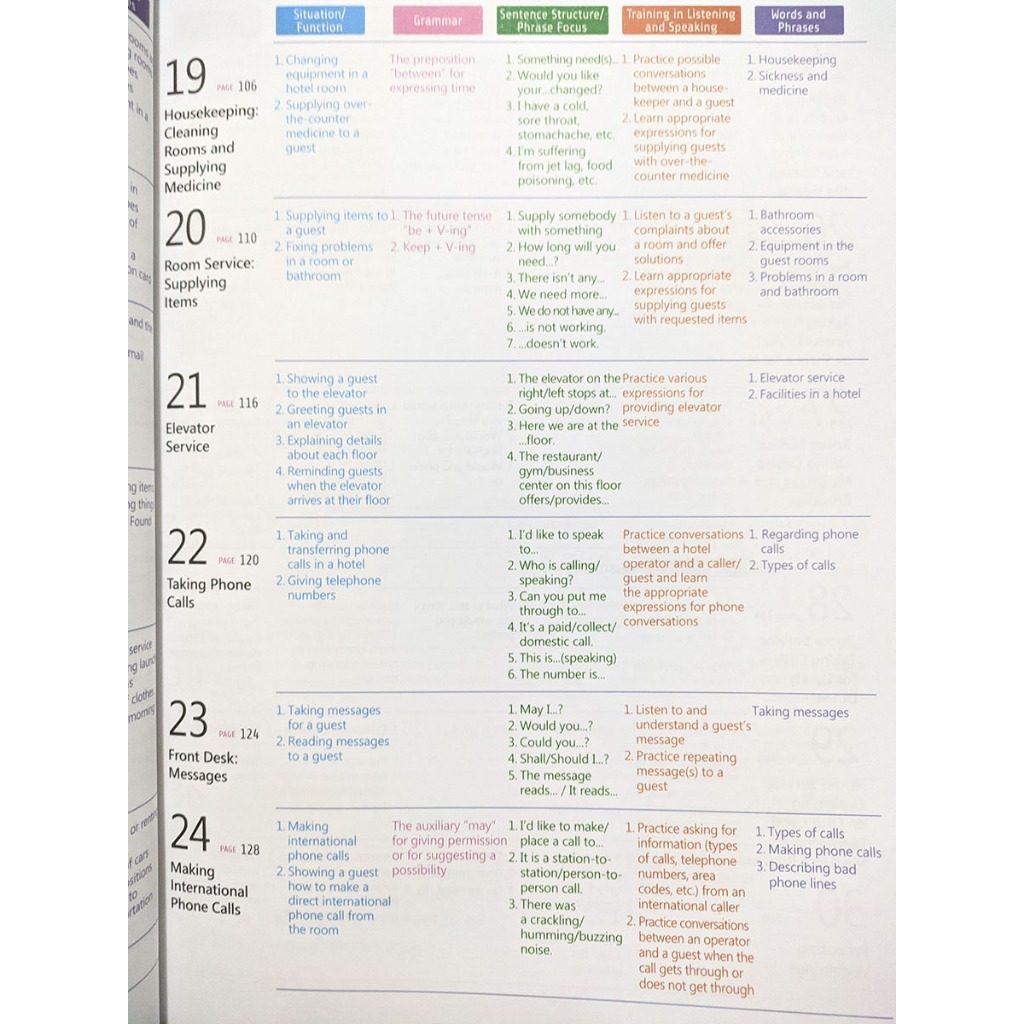 Situation/
Function
Grammar
Sentence Structure/
Phrase Focus
Training in Listening
and Speaking
Words and
Phrases
19 PAGE 106
Housekeeping:
Cleaning
Rooms and
Supplying
Medicine
1. Changing
equipment in a
hotel room
2. Supplying over-
the-counter
medicine to a
guest
The preposition
"between" for
expressing time
1. Something need(s)...
2. Would you like
your...changed?
3. I have a cold,
sore throat,
stomachache, etc.
4. I'm suffering
from jet lag, food
poisoning, etc.
1. Practice possible
conversations
between a house-
keeper and a guest
2. Learn appropriate
expressions for
supplying guests
with over-the-
counter medicine
1. Housekeeping
2. Sickness and
medicine
20 PAGE 110
Room Service:
Supplying
Items
1. Supplying items to
a guest
2. Fixing problems
in a room or
bathroom
1. The future tense
"be + V-ing"
2. Keep + V-ing
1. Supply somebody
with something
2. How long will you
need...?
3. There isn't any...
4. We need more...
5. We do not have any...
6. ...is not working.
7. ...doesn't work.
1. Listen to a guest's
complaints about
a room and offer
solutions
2. Learn appropriate
expressions for
supplying guests
with requested items
1. Bathroom
accessories
2. Equipment in the
guest rooms
3. Problems in a room
and bathroom
21 PAGE 116
Elevator
Service
1. Showing a guest
to the elevator
2. Greeting guests in
an elevator
3. Explaining details
about each floor
4. Reminding guests
when the elevator
arrives at their floor
1. The elevator on the
right/left stops at...
2. Going up/down?
3. Here we are at the
...floor.
4. The restaurant/
gym/business
center on this floor
offers/provides...
Practice various
expressions for
providing elevator
service
1. Elevator service
2. Facilities in a hotel
22 PAGE 120
Taking Phone
Calls
1. Taking and
transferring phone
calls in a hotel
2. Giving telephone
numbers
1. I'd like to speak
to...
2. Who is calling/
speaking?
3. Can you put me
through to...
4. It's a paid/collect/
domestic call.
5. This is...(speaking)
6. The number is...
Practice conversations
between a hotel
operator and a caller/
guest and learn
the appropriate
expressions for phone
conversations
1. Regarding phone
calls
2. Types of calls
23 PAGE 124
Front Desk:
Messages
1. Taking messages
for a guest
2. Reading messages
to a guest
1. May I...?
2. Would you...?
3. Could you...?
4. Shall/Should I...?
5. The message
reads... / It reads...
1. Listen to and
understand a guest's
message
2. Practice repeating
message(s) to a
guest
Taking messages
24 PAGE 128
Making
International
Phone Calls
1. Making
international
phone calls
2. Showing a guest
how to make a
direct international
phone call from
the room
The auxiliary "may"
for giving permission
or for suggesting a
possibility
1. I'd like to make/
place a call to...
2. It is a station-to-
station/person-to-
person call.
3. There was
a crackling/
humming/buzzing
noise.
1. Practice asking for
information (types
of calls, telephone
numbers, area
codes, etc.) from an
international caller
2. Practice conversations
between an operator
and a guest when the
call gets through or
does not get through
1. Types of calls
2. Making phone calls
3. Describing bad
phone lines